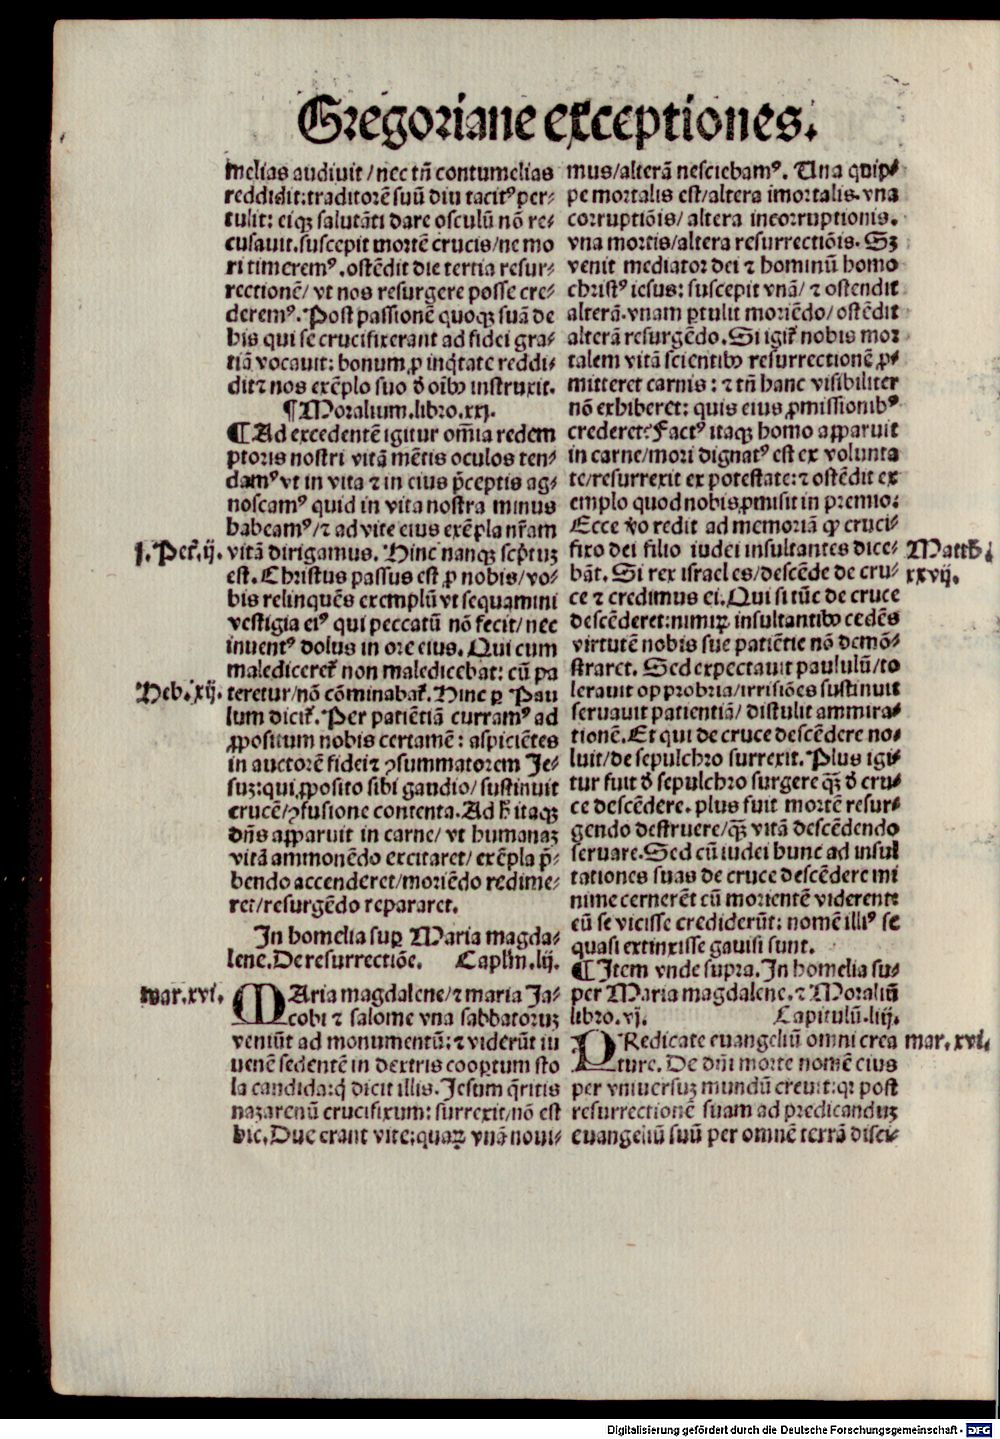 Gregoriane exceptiones.
melias audiuit/nec tñ contumelias
reddidit:traditorē suū diu tacitꝰ per⸗
tulit: eiqꝫ salutāti dare osculū nō re⸗
cusauit.suscepit mortē crucis/ne mo
ri timeremꝰ.ostēdit die tertia resur⸗
rectionē/ vt nos resurgere posse cre⸗
deremꝰ. Post passionē quoqꝫ suā de
his qui se crucifixerant ad fidei gra⸗
tiā vocauit: bonum ꝓ inꝗtate reddi⸗
dit⁊ nos exēplo suo đ oībꝰ instruxit.
¶Moralium.libro.xxj.
¶Ad excedentē igitur om̄ia redem
ptoris nostri vitā mētis oculos ten⸗
damꝰ vt in vita ⁊ in eius p̄ceptis ag⸗
noscamꝰ quid in vita nostra minus
habeamꝰ/⁊ ad vite eius exēpla nr̄am
j. Pet̄.ij.
vitā dirigamus. Hinc nanqꝫ scp̄tuꝫ
est. Christus passus est ꝓ nobis/vo⸗
bis relinquēs exemplū vt sequamini
vestigia eiꝰ qui peccatū nō fecit/nec
inuentꝰ dolus in ore eius. Qui cum
malediceret̄ non maledicebat: cū pa
Heb.xij.
teretur/nō cōminabat̄. Hinc ꝑ Pau
lum dicit̄. Per patiētiā curramꝰ ad
ꝓpositum nobis certamē: aspiciētes
in auctorē fidei⁊ ꝯsummatorem Je⸗
suꝫ:qui ꝓposito sibi gaudio/sustinuit
crucē/ꝯfusione contenta. Ad h̄ itaqꝫ
dn̄s apparuit in carne/ vt humanaꝫ
vitā ammonēdo excitaret/ exēpla p̄⸗
bendo accenderet/moriēdo redime⸗
ret/resurgēdo repararet.
In homelia suꝑ Maria magda⸗
lene. De resurrectiōe. Caplm̄.lij.
mar.xvi.
MAria magdalene/⁊ maria Ja⸗
cobi ⁊ salome vna sabbatoruꝫ
veniūt ad monumentū: ⁊ viderūt iu
uenē sedentē in dextris cooꝑtum sto
la candida:ꝗ dicit illis. Jesum q̄ritis
nazarenū crucifixum: surrexit/nō est
hic. Due erant vite:quaꝝ vnā noui⸗
mus/alterā nesciebamꝰ. Una quip⸗
pe mortalis est/altera imortalis. vna
corruptiōis/ altera incorruptionis.
vna mortis/altera resurrectiōis. Sꝫ
venit mediator dei ⁊ hominū homo
christꝰ iesus: suscepit vnā/ ⁊ ostendit
alterā. vnam ꝑtulit moriēdo/ ostēdit
alterā resurgēdo. Si igit̄ nobis mor
talem vitā scientibꝰ resurrectionē ꝓ⸗
mitteret carnis: ⁊ tñ hanc visibiliter
nō exhiberet: quis eius ꝓmissionibꝰ
crederet? Factꝰ itaqꝫ homo apparuit
in carne/mori dignatꝰ est ex volunta
te/resurrexit ex potestate:⁊ ostēdit ex
emplo quod nobis ꝓmisit in premio:
Ecce v̄o redit ad memoriā ꝙ cruci⸗
fixo dei filio iudei insultantes dice⸗
Matth̄
xxvij.
bāt. Si rex israel es/descēde de cru⸗
ce ⁊ credimus ei. Qui si tūc de cruce
descēderet:nimiꝝ insultantibꝰ cedēs
virtutē nobis sue patiētie nō demō⸗
straret. Sed expectauit paululū/to
lerauit opprobria/irrisiōes sustinuit
seruauit patientiā/ distulit ammira⸗
tionē. Et qui de cruce descēdere no⸗
luit/de sepulchro surrexit. Plus igi⸗
tur fuit đ sepulchro surgere qꝫ̄ đ cru⸗
ce descēdere. plus fuit mortē resur⸗
gendo destruere/qꝫ̄ vitā descēdendo
seruare. Sed cū iudei hunc ad insul
tationes suas de cruce descēdere mi
nime cernerēt cū morientē viderent:
eū se vicisse crediderūt: nomē illiꝰ se
quasi extinxisse gauisi sunt.
¶Item vnde supra. In homelia su⸗
per Maria magdalene. ⁊ Moraliū
libro.vj. Capitulū.liij.
PRedicate euangeliū omni crea
mar.xvi.
ture. De dn̄i morte nomē eius
per vniuersuꝫ mundū creuit:qr post
resurrectionē suam ad predicanduꝫ
euangeliū suū per omnē terrā disci⸗
Digitalisierung gefördert durch die Deutsche Forschungsgemeinschaft - DFG